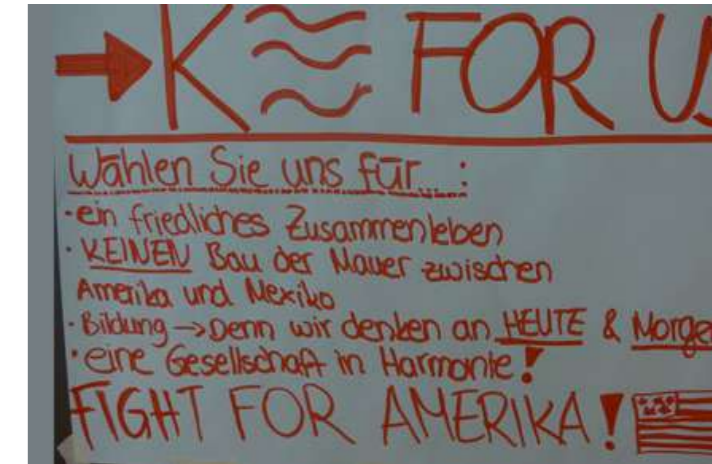 →K FOR US
Wählen Sie uns für...:
· ein friedliches Zusammenleben
· KEINEN Bau der Mauer zwischen
Amerika und Mexiko
· Bildung → Denn wir denken an HEUTE & Morgen
· eine Gesellschaft in Harmonie!
FIGHT FOR AMERIKA!